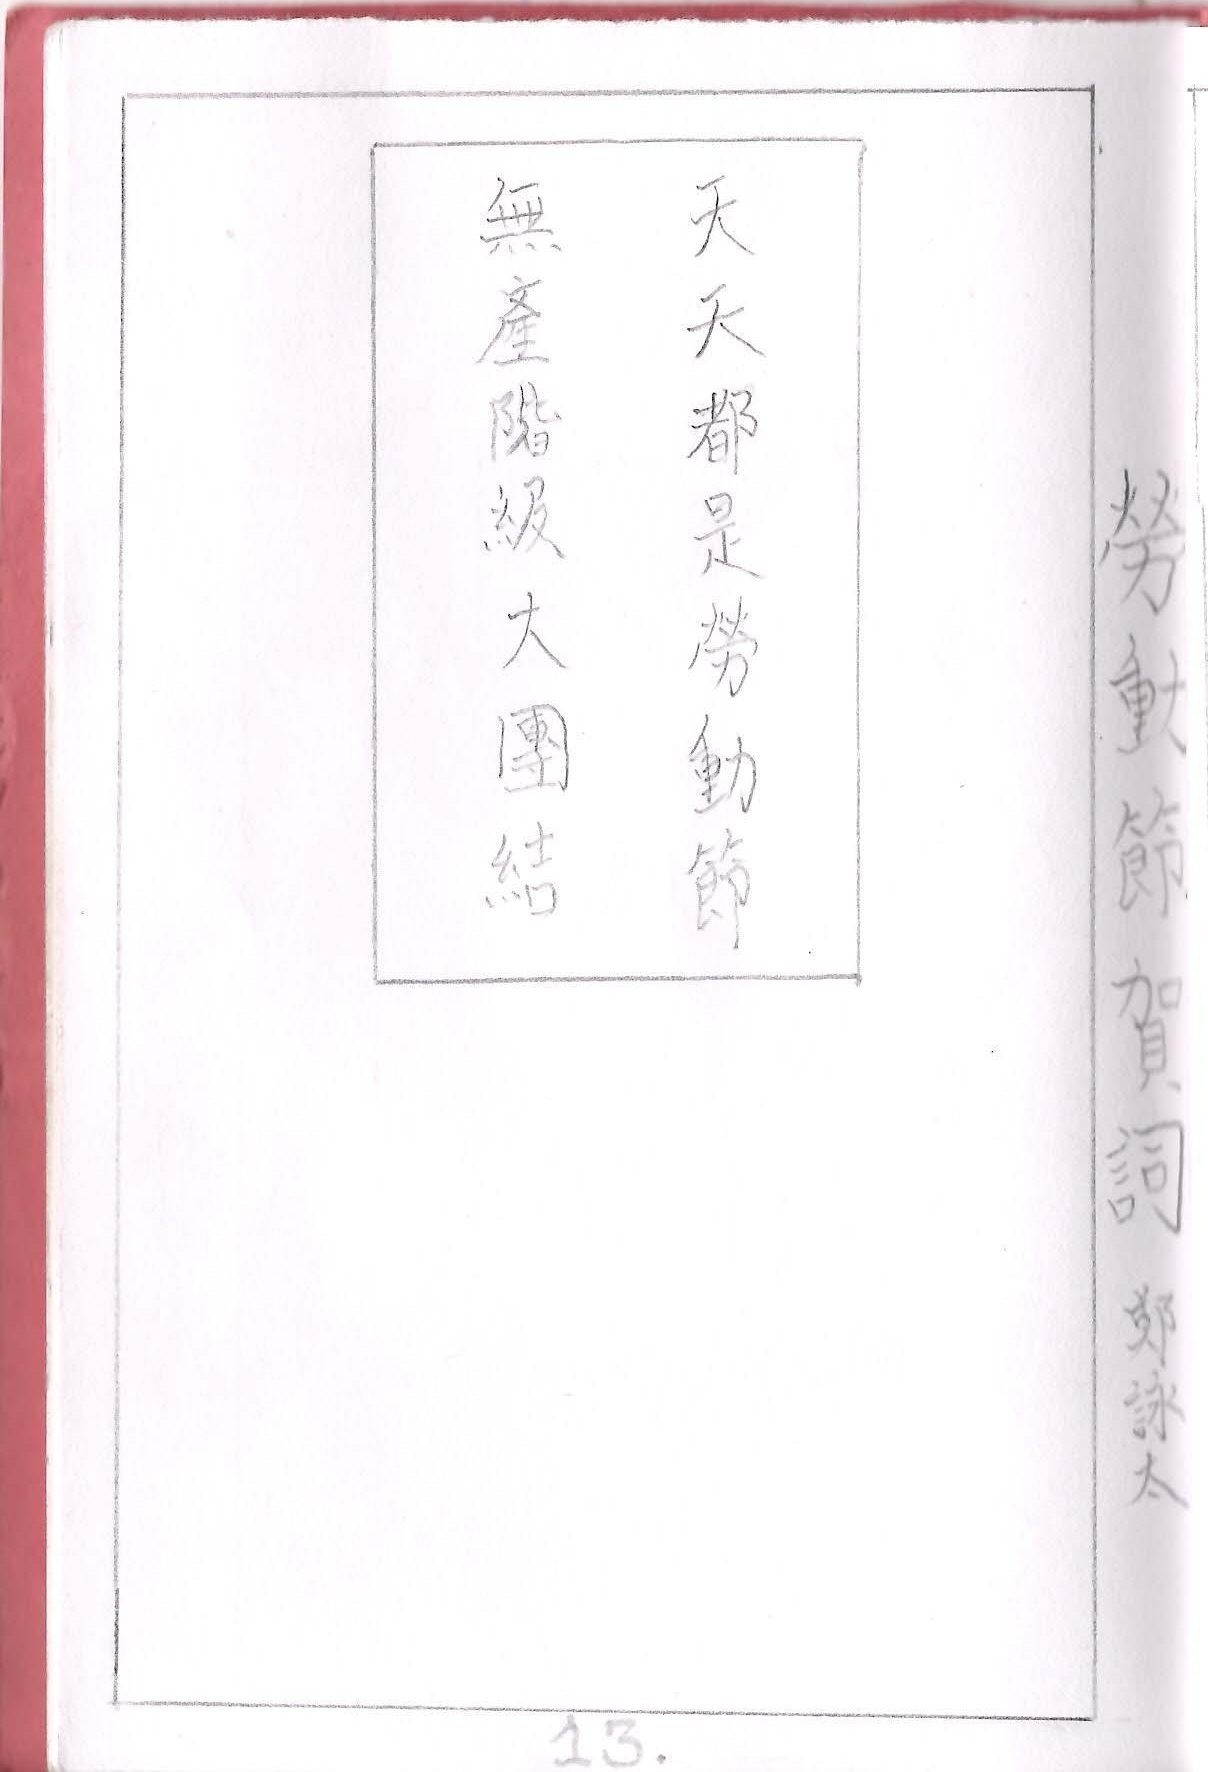 勞動節賀詞 鄭詠太
天天都是勞動節
無產階級大團結
13.